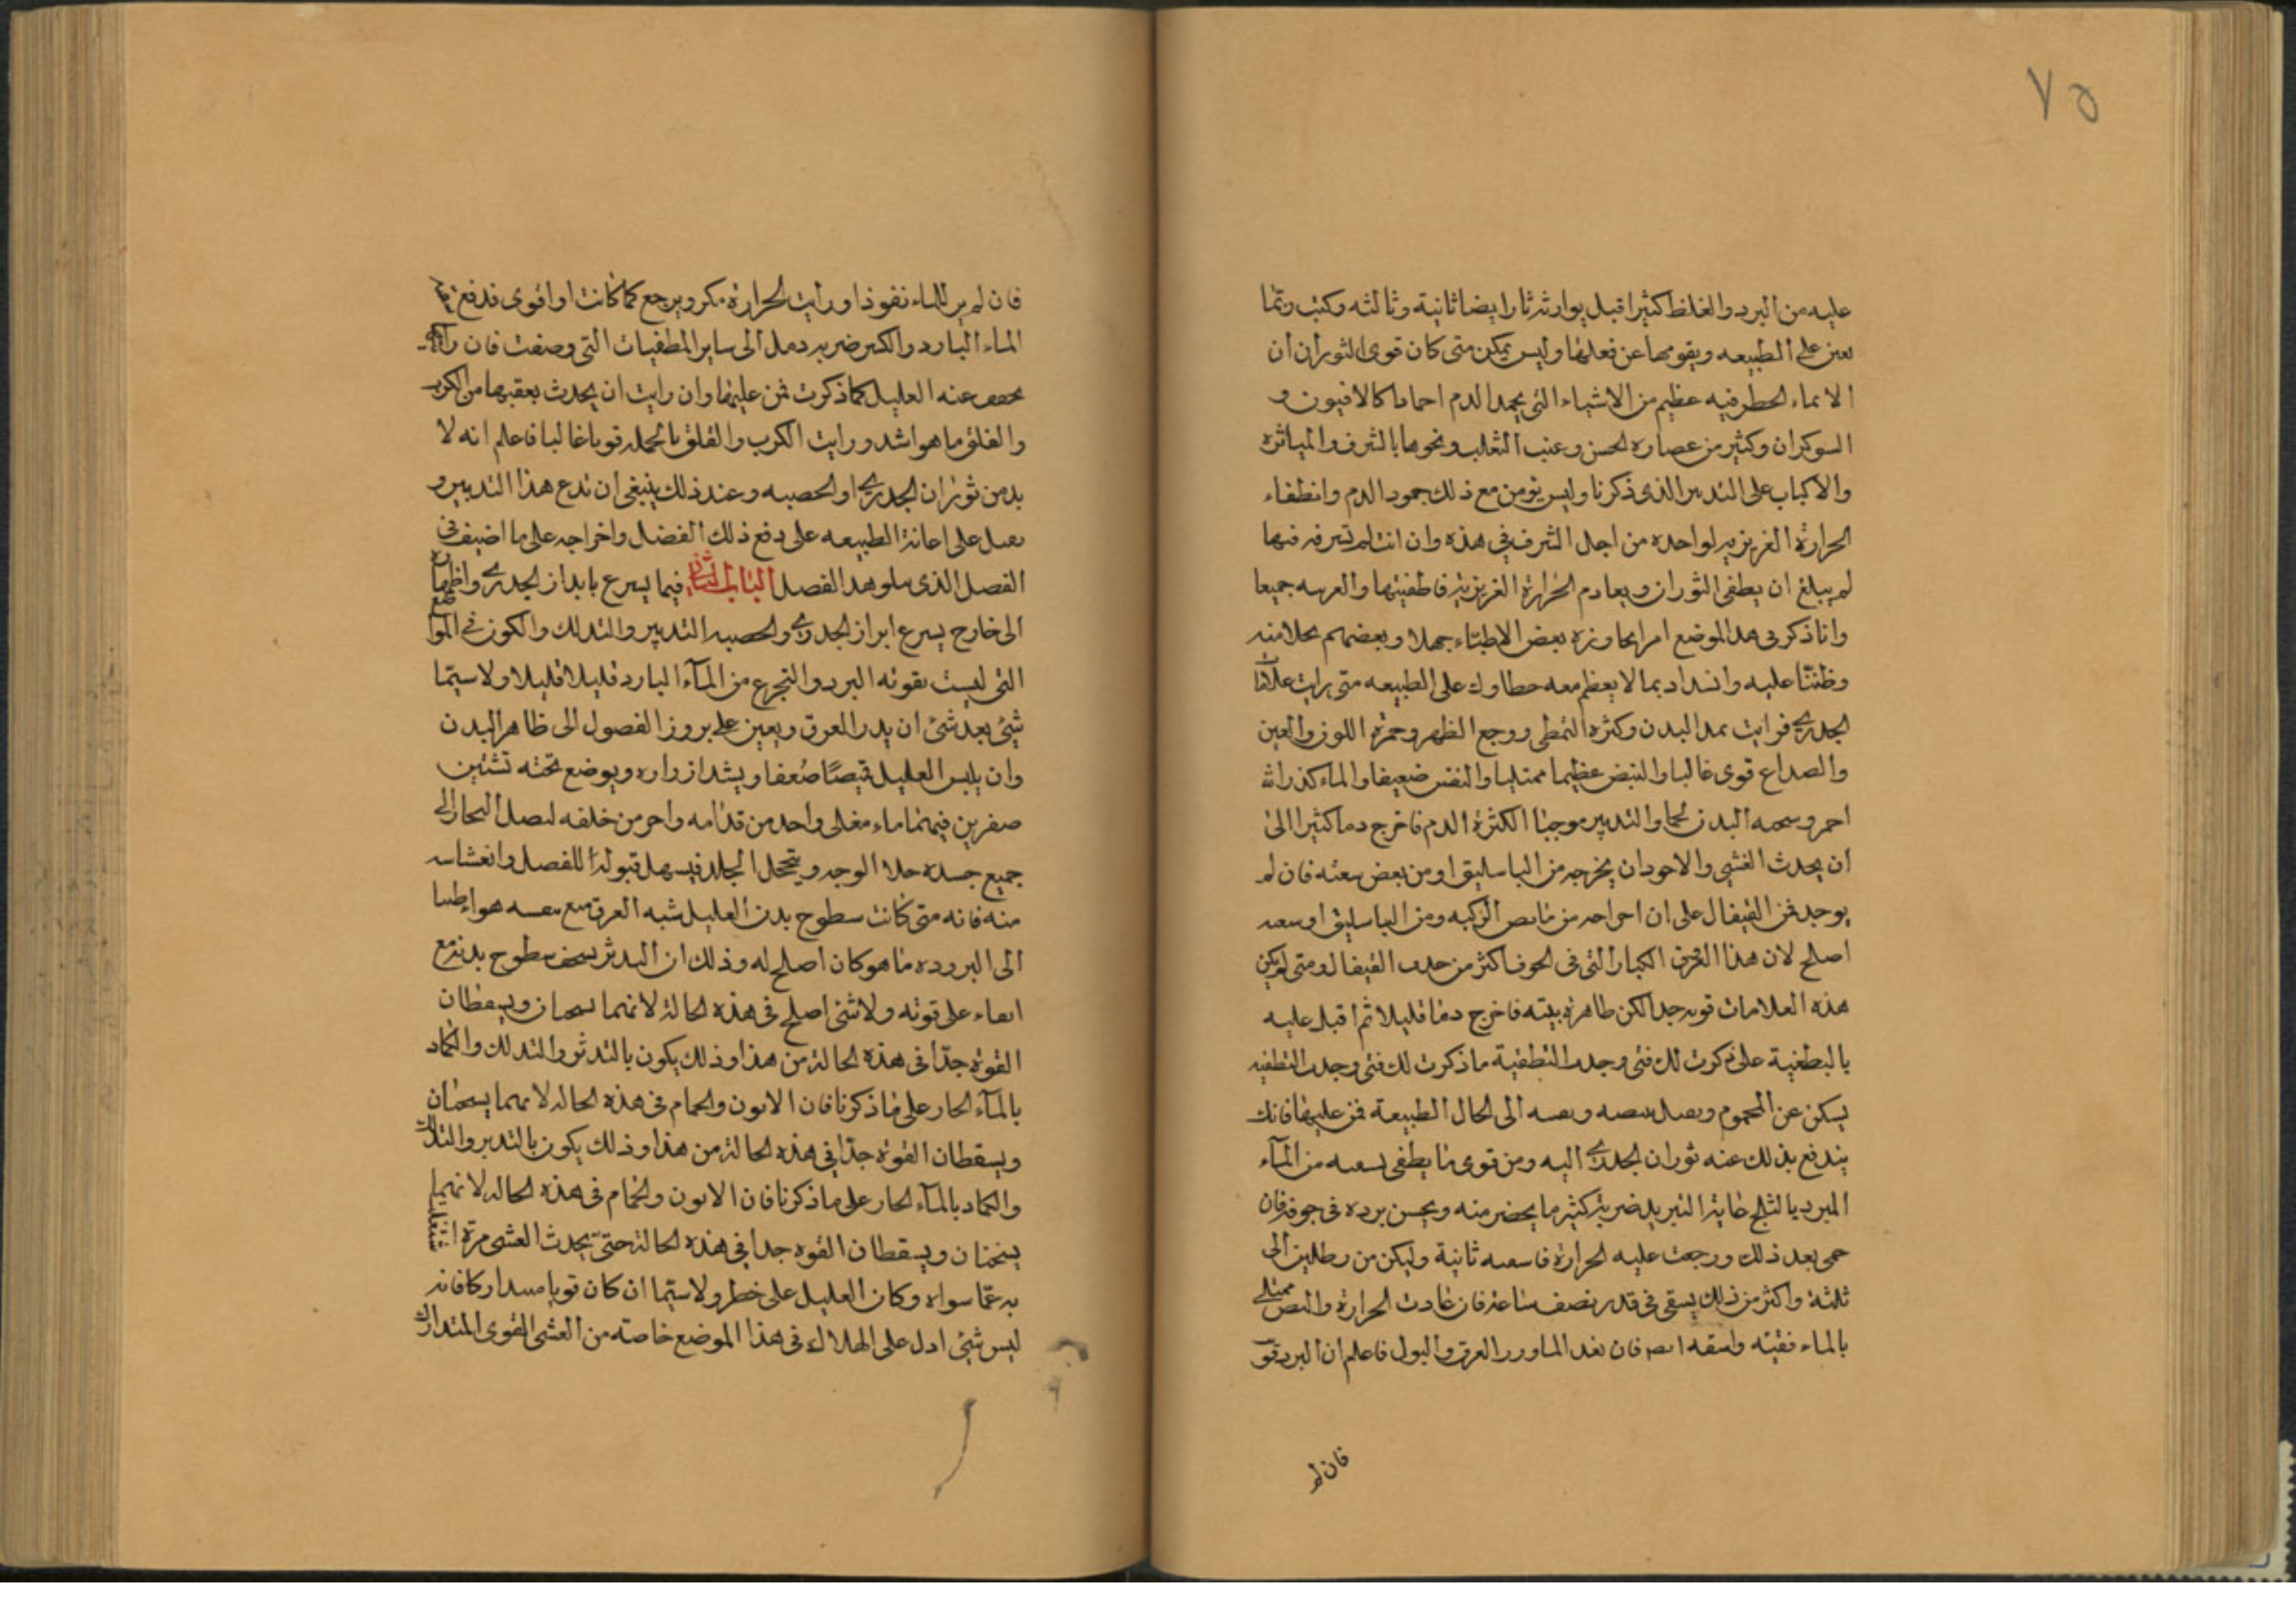 ٧٥
عليه من البرد والغلظ كثيرا قبل يوارثه ثارا ايضا ثانية وثالثه وكنت ربما
تعين على الطبيعه ويقومها عن فعلها وليس يمكن متى كان قوى الثوران ان
الا بماء الخطر فيه عظيم من الاشياء التى يجمد الدم احمادا كالافيون و
السوكران وكثير من عصاره الخس وعنب الثعلب ونحوها بالشرف والمباثره
والاكباب على التدبير الذى ذكرنا وليس نومن مع ذلك جمود الدم وانطفاء
الحرارة الغريزيه لواحده من اجل الشرف فى هذه وان انت لم تسرف فيها
لم يبلغ ان يطفى الثوران ويعادم الحرارة الغريزية فاطفيتها والغربيه جميعا
وانا ذكر فى هذا الموضع امرا بجاوزه بعض الاطباء جهلا وبعضهم بخلا منه
وظننا عليه وانسداد بما لا يعظم معه خطا وك على الطبيعه متى رايت علامات
الجدرى فرايت تمدد البدن وكثره التمطى ووجع الظهر وحمرة اللون والعين
والصداع قوى غالبا والنبض عظيما ممتليا والنفس ضعيفا والماء كدرا
احمر وسحنه البدن لحما والتدبير موجبا لكثرة الدم فاخرج دما كثيرا الى
ان يحدث الغشى والاجود ان يخرجه من الباسليق او من بعض شعبه فان لم
يوجد فمن القيفال على ان اخراجه من مابض الركبه ومن الباسليق او شعبه
اصلح لان هذا العرق الكبار التى فى الجوف اكثر من جذب القيفال ومتى لم يكن
هذه العلامات قويه جدا لكن ظاهرة بينه فاخرج دما قليلا ثم اقبل عليه
بالبطفية على ذكرت لك فمتى وجدت التطفية ما ذكرت لك فمتى وجدت التطفيه
يسكن عن المحموم ونبضه ونفسه الى الحال الطبيعة فمن عليها فانك
يندفع بذلك عنه ثوران الجدرى اليه ومن قوى ما يطفى به سعيه من الماء
المبرد بالثلج غاية التبريد ضربة كثير ما يحضر منه ويحسن برده فى جوفه فان
حمى بعد ذلك ورجعت عليه الحرارة فاسعه ثانية وليكن من رطلين الى
ثلثة واكثر من ذلك يسقى فى قدر نصف ساعة فان عادت الحرارة والبطن ممتلى
بالماء فقيئه واسقه ايضا فان نفد الماء ودر العرق والبول فاعلم ان البرد قوى
فان لم
فان لم ير للماء نفوذا ورايت الحرارة مكر ويرجع كما كانت او اقوى فدفع
الماء البارد والكبير ضربه دمل الى ساير المطفيات التى وصفت فان رايت
يخف عنه العليل كما ذكرت فمن عليها وان رايت ان يحدث بعقبها من الكرب
والغلق ما هو اشد ورايت الكرب والقلق بالجمله قويا غالبا فاعلم انه لا
بد من ثوران الجدرى او الحصبه وعند ذلك ينبغى ان تدع هذا التدبير و
نعمل على اعانة الطبيعه على دفع ذلك الفضل واخراجه على ما اضيف فى
الفصل الذى يتلو هذا الفصل الباب الثانى فيما يسرع بابراز الجدرى واظهاره
الى خارج يسرع ابراز الجدرى والحصبه التدثير والتدلك والكون فى المواضع
التى ليست بقويه البرد والتجرع من المآء البارد قليلا قليلا ولا سيما
شئ بعد شئ ان يدر العرق ويعين على بروز الفضول الى ظاهر البدن
وان يلبس العليل قميصا ضعفا ويشد ازراره ويوضع تحته تشتين
صغرين فيهما ماء مغلى واحد من قدامه واخر من خلفه ليصل البخار الى
جميع جسده خلا الوجه ويتخلخل الجلد فيسهل قبوله للفصل وانغشاشه
منه فانه متى كانت سطوح بدن العليل شبه العرق مع نفسه هواء طيبا
الى البروده ما هو كان اصلح له وذلك ان البدثر يسخف سطوح بدنه مع
ابقاء على قوته ولا شئ اصلح فى هذه الحالة لانهما يسخنان ويسقطان
القوة جدا فى هذه الحالة من هذا وذلك يكون بالتدثر والتدلك والكماد
بالمآء الحار على ما ذكرنا فان الاتون والحمام فى هذه الحاله لانهما يسخنان
ويسقطان القوة جدا فى هذه الحالة من هذا وذلك يكون بالتدثر والتدلك
والكماد بالمآء الحار على ما ذكرنا فان الاتون والحمام فى هذه الحاله لانهما
يسخنان ويسقطان القوه جدا فى هذه الحالة حتى يحدث الغشى مرة اشتغل
به عما سواه وكان العليل على خطر ولا سيما ان كان قويا متداركا فانه
ليس شئ ادل على الهلاك فى هذا الموضع خاصة من الغشى القوى المتدارك